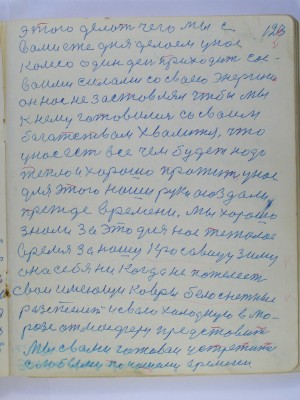 этого делат чего мы с 128
вами сже дня делаем у нас
Колесо один ден приходит со
своими силами со своею Энергиею
он нас не заставлям чтобы мы
к нему готовилися со своим
багатством хвалимся, что
у нас ест все чем будет надо
тепло и хорошо прожит у нас
для этого наши руки создали
прежде времени, мы хорошо
знали за это дня нас тежолое
время за нашу Красавицу зиму
она себя ни когда не пожелеет
свои имеющи ковры белоснежные
разстелит и свою холодную в мо-
розе атмосферу представит
мы с вами готовы устретит
с любовью по нашему времени